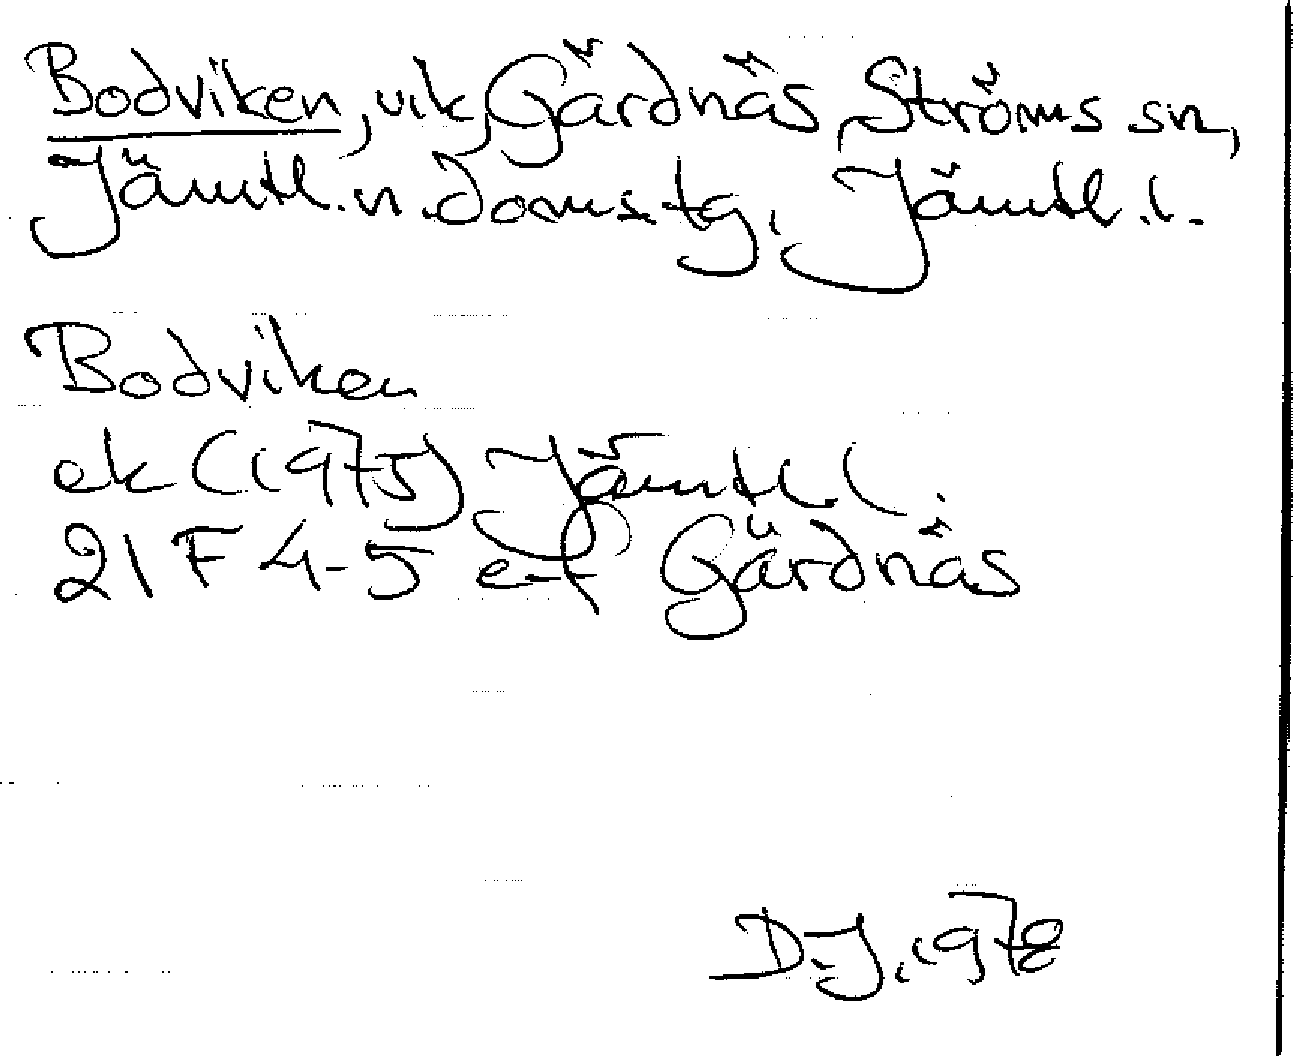 Bodviken, vik, Gärdnäs, Ströms sn,
Jämtl. n. doms. tg., Jämtl. l.
Bodviken
ek (1975) Jämtl l.
21 F 4-5 e-f Gärdnäs
D.J. 1978